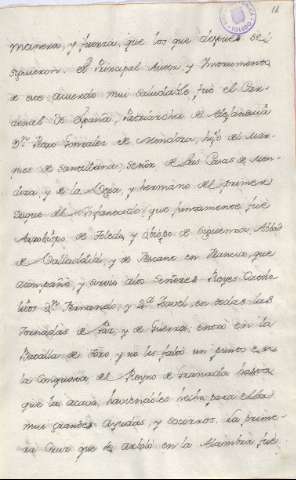 manera, y fuerza, que los que despues se
siguieron. El Principal Autor y Ynstrumento
de este acuerdo mui saludable fue el Car-
denal de España, Patriarcha de Alexandria
Dn. Pedro Gonzalez de Mendoza, hijo del Mar-
ques de Santillana, Señor de las Casas de Men-
doza, y de la Vega, y hermano del primer
Duque del Ynfantado; que juntamente fue
Arzobispo de Toledo, y Obispo de Siguenza, Abbad
de Valladolid, y de Fiscane en Francia, que
acompañò, y sirviò à los Señores Reyes Catho-
licos Dn. Fernando, y Dª Ysavel en todas las
Jornadas de Paz, y de Guerra, entrò en la
Batalla de Toro, y no les faltò un punto en
la Conquista del Reyno de Granada hasta
que la acavò, haviendoles hecho para ella
mui grandes Ayudas, y socorros. La prime-
ra Cruz que se arbolò en la Alambra fue